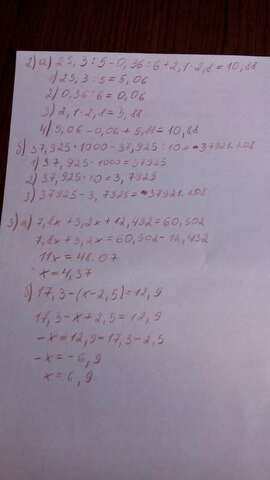 2) а) 25,3:5-0,36:6+2,1·2,8=10,88
1) 25,3:5=5,06
2) 0,36:6=0,06
3) 2,1·2,8=5,88
4) 5,06-0,06+5,88=10,88
б) 37,925·1000-37,925:10=
1) 37,925·1000=37925
2) 37,925:10=3,7925
3) 37925-3,7925=
3) а) 7,8x+3,2x+12,432=60,502
7,8x+3,2x=60,502-12,432
11x=48.07
x=4,37
б) 17,3-(x-2,5)=12,9
17,3-x+2,5=12,9
-x=12,9-17,3-2,5
-x=-6,9
x=6,9